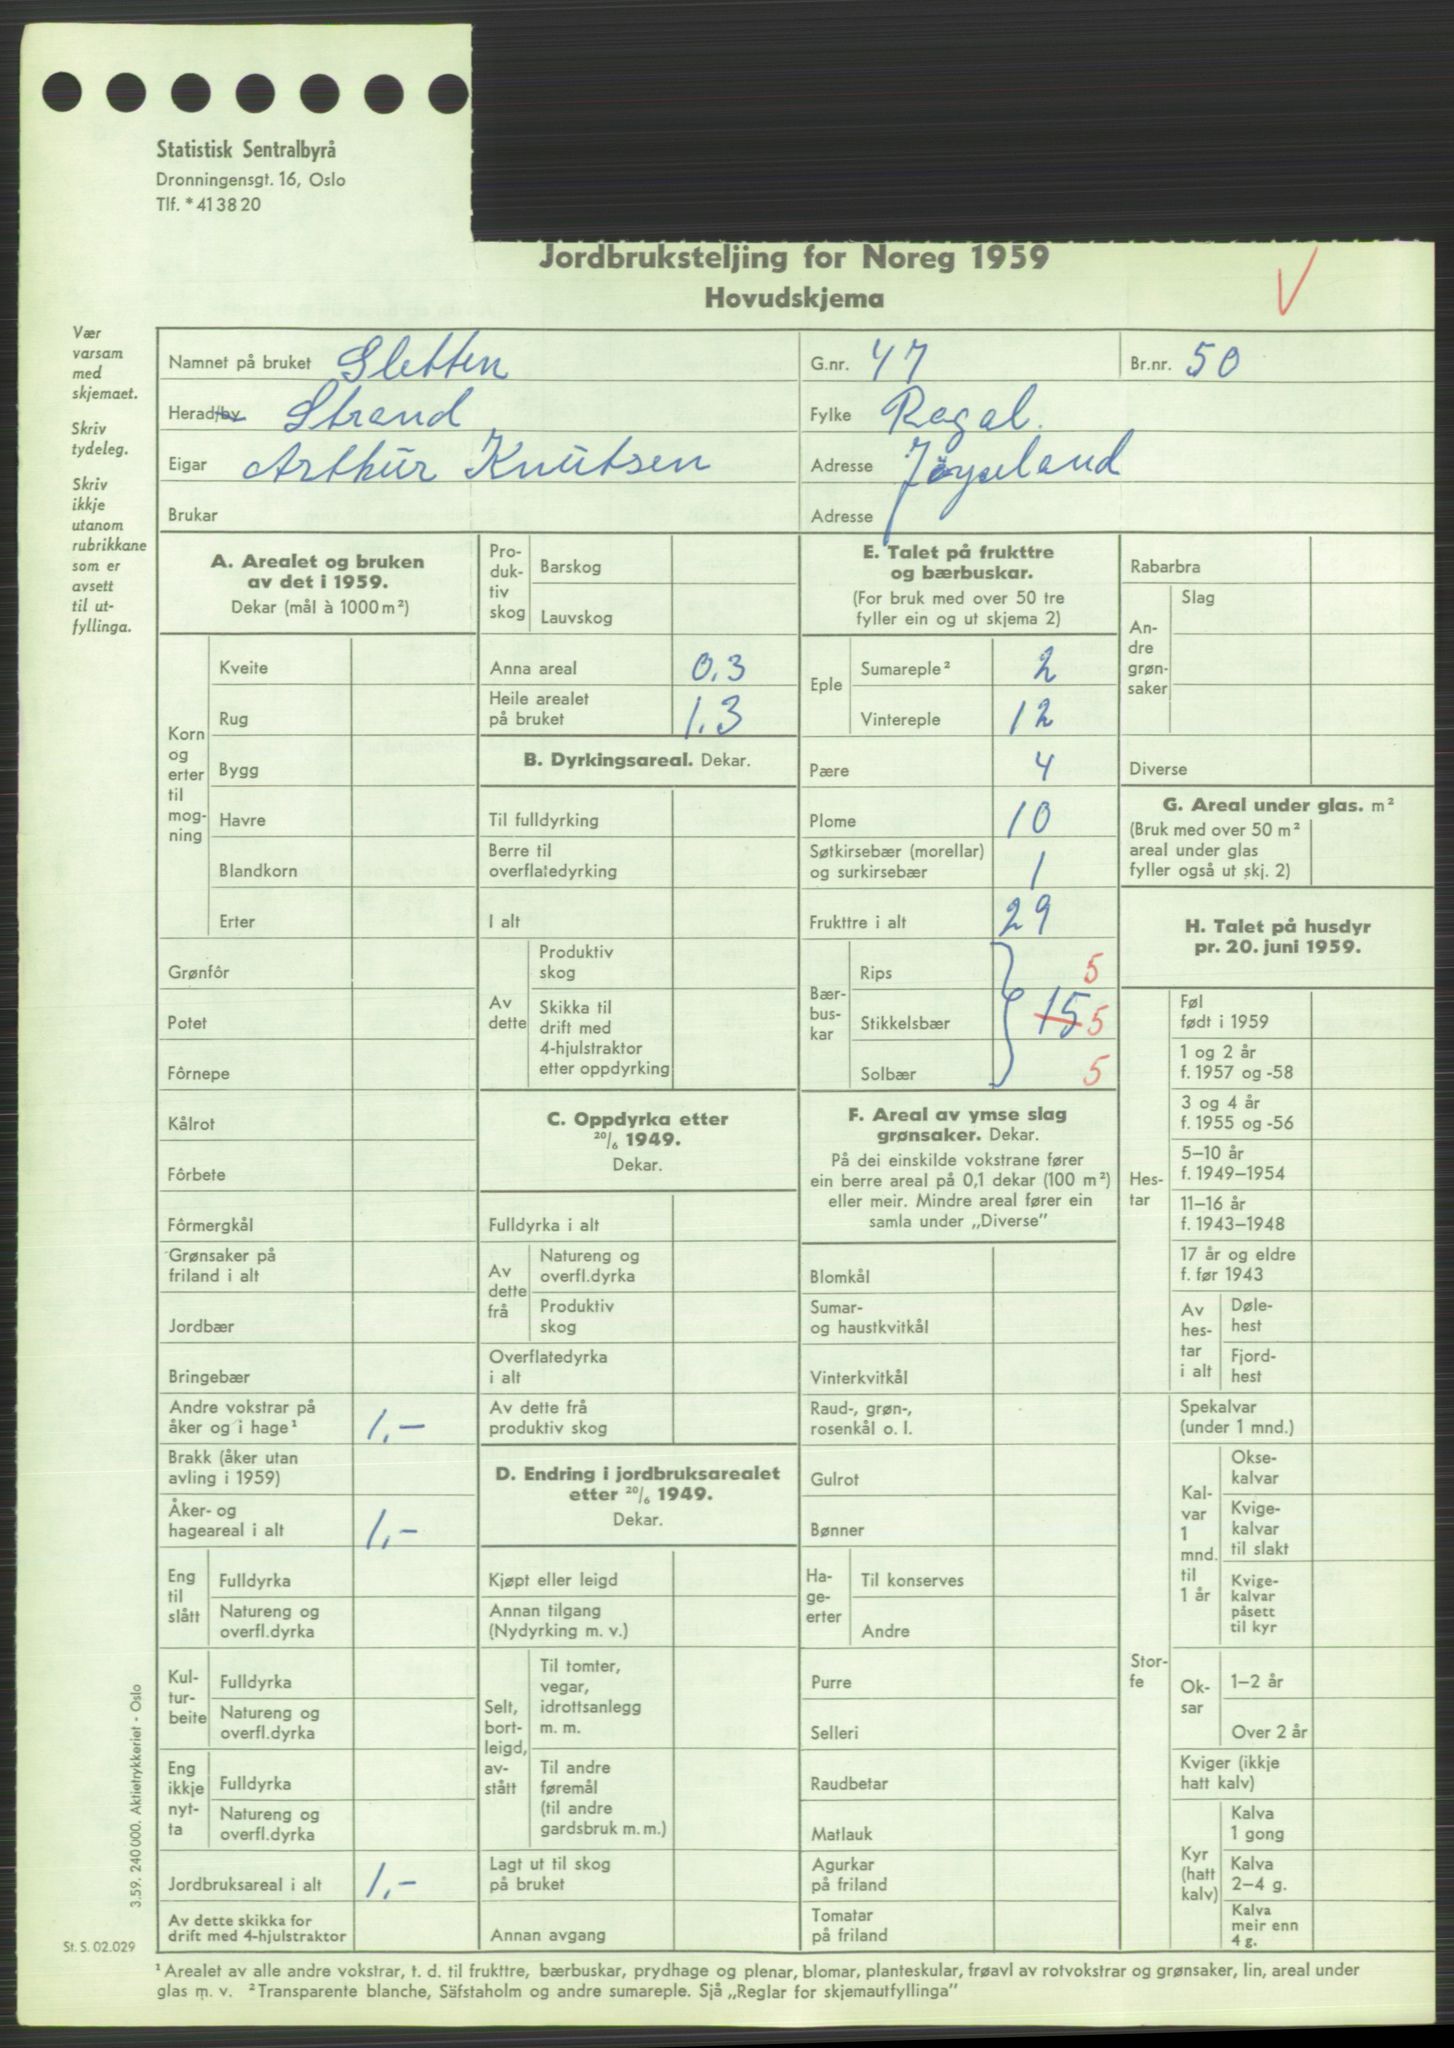 Statistisk Sentralbyrå
Dronningensgt. 16, Oslo
Tlf. * 41 38 20
Jordbruksteljing for Noreg 1959
Hovudskjema
V
Vær
varsam
med
skjemaet.
Skriv
tydeleg.
Skriv
ikkje
utanom
rubrikkane
som er
avsett
til ut-
fyllinga.
Namnet på bruket Sletten G.nr. 47 Br.nr. 50
Herad/by Strand Fylke Rogal.
Eigar Arthur Knutsen Adresse
Brukar Adresse
A. Arealet og bruken
av det i 1959.
Dekar (mål à 1000 m²)
Korn
og
erter
til
mog-
ning
Kveite
Rug
Bygg
Havre
Blandkorn
Erter
Grønfôr
Potet
Fôrnepe
Kålrot
Fôrbete
Fôrmergkål
Grønsaker på
friland i alt
Jordbær
Bringebær
Andre vokstrar på
åker og i hage¹ 1,-
Brakk (åker utan
avling i 1959)
Åker- og
hageareal i alt 1,-
Eng
til
slått
Fulldyrka
Natureng og
overfl.dyrka
Kul-
tur-
beite
Fulldyrka
Natureng og
overfl.dyrka
Eng
ikkje
nyt-
ta
Fulldyrka
Natureng og
overfl.dyrka
Jordbruksareal i alt 1,-
Av dette skikka for
drift med 4-hjulstraktor
Pro-
duk-
tiv
skog
Barskog
Lauvskog
Anna areal 0.3
Heile arealet
på bruket 1.3
B. Dyrkingsareal. Dekar.
Til fulldyrking
Berre til
overflatedyrking
I alt
Av
dette
Produktiv
skog
Skikka til
drift med
4-hjulstraktor
etter oppdyrking
C. Oppdyrka etter
20/6 1949.
Dekar.
Fulldyrka i alt
Av
dette
frå
Natureng og
overfl.dyrka
Produktiv
skog
Overflatedyrka
i alt
Av dette frå
produktiv skog
D. Endring i jordbruksarealet
etter 20/6 1949.
Dekar.
Kjøpt eller leigd
Annan tilgang
(Nydyrking m. v.)
Selt,
bort-
leigd,
av-
stått
Til tomter,
vegar,
idrottsanlegg
m. m.
Til andre
føremål
(til andre
gardsbruk m. m.)
Lagt ut til skog
på bruket
Annan avgang
E. Talet på frukttre
og bærbuskar.
(For bruk med over 50 tre
fyller ein og ut skjema 2)
Eple
Sumareple² 2
Vintereple 12
Pære 4
Plome 10
Søtkirsebær (morellar)
og surkirsebær 1
Frukttre i alt 29
Bær-
bus-
kar
Rips 5
Stikkelsbær 15 5
Solbær 5
F. Areal av ymse slag
grønsaker. Dekar.
På dei einskilde vokstrane fører
ein berre areal på 0,1 dekar (100 m²)
eller meir. Mindre areal fører ein
samla under „Diverse"
Blomkål
Sumar-
og haustkvitkål
Vinterkvitkål
Raud-, grøn-,
rosenkål o. l.
Gulrot
Bønner
Ha-
ge-
erter
Til konserves
Andre
Purre
Selleri
Raudbetar
Matlauk
Agurkar
på friland
Tomatar
på friland
Rabarbra
An-
dre
grøn-
saker
Slag
Diverse
G. Areal under glas. m²
(Bruk med over 50 m²
areal under glas
fyller også ut skj. 2)
H. Talet på husdyr
pr. 20. juni 1959.
Hes-
tar
Føl
født i 1959
1 og 2 år
f. 1957 og -58
3 og 4 år
f. 1955 og -56
5–10 år
f. 1949–1954
11–16 år
f. 1943–1948
17 år og eldre
f. før 1943
Av
hes-
tar
i alt
Døle-
hest
Fjord-
hest
Stor-
fe
Spekalvar
(under 1 mnd.)
Kal-
var
1
mnd.
til
1 år
Okse-
kalvar
Kvige-
kalvar
til slakt
Kvige-
kalvar
påsett
til kyr
Ok-
sar
1–2 år
Over 2 år
Kviger (ikkje
hatt kalv)
Kyr
(hatt
kalv)
Kalva
1 gong
Kalva
2–4 g.
Kalva
meir enn
4 g.
3.59. 240 000. Aktietrykkeriet - Oslo
St. S. 02.029
¹ Arealet av alle andre vokstrar, t. d. til frukttre, bærbuskar, prydhage og plenar, blomar, planteskular, frøavl av rotvokstrar og grønsaker, lin, areal under
glas m. v. ² Transparente blanche, Säfstaholm og andre sumareple. Sjå „Reglar for skjemautfyllinga"